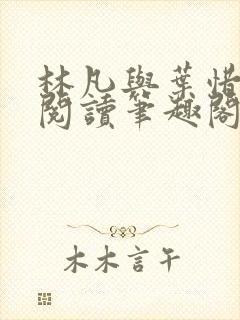 林凡與葉惜
閱讀筆趣閣
木木言午